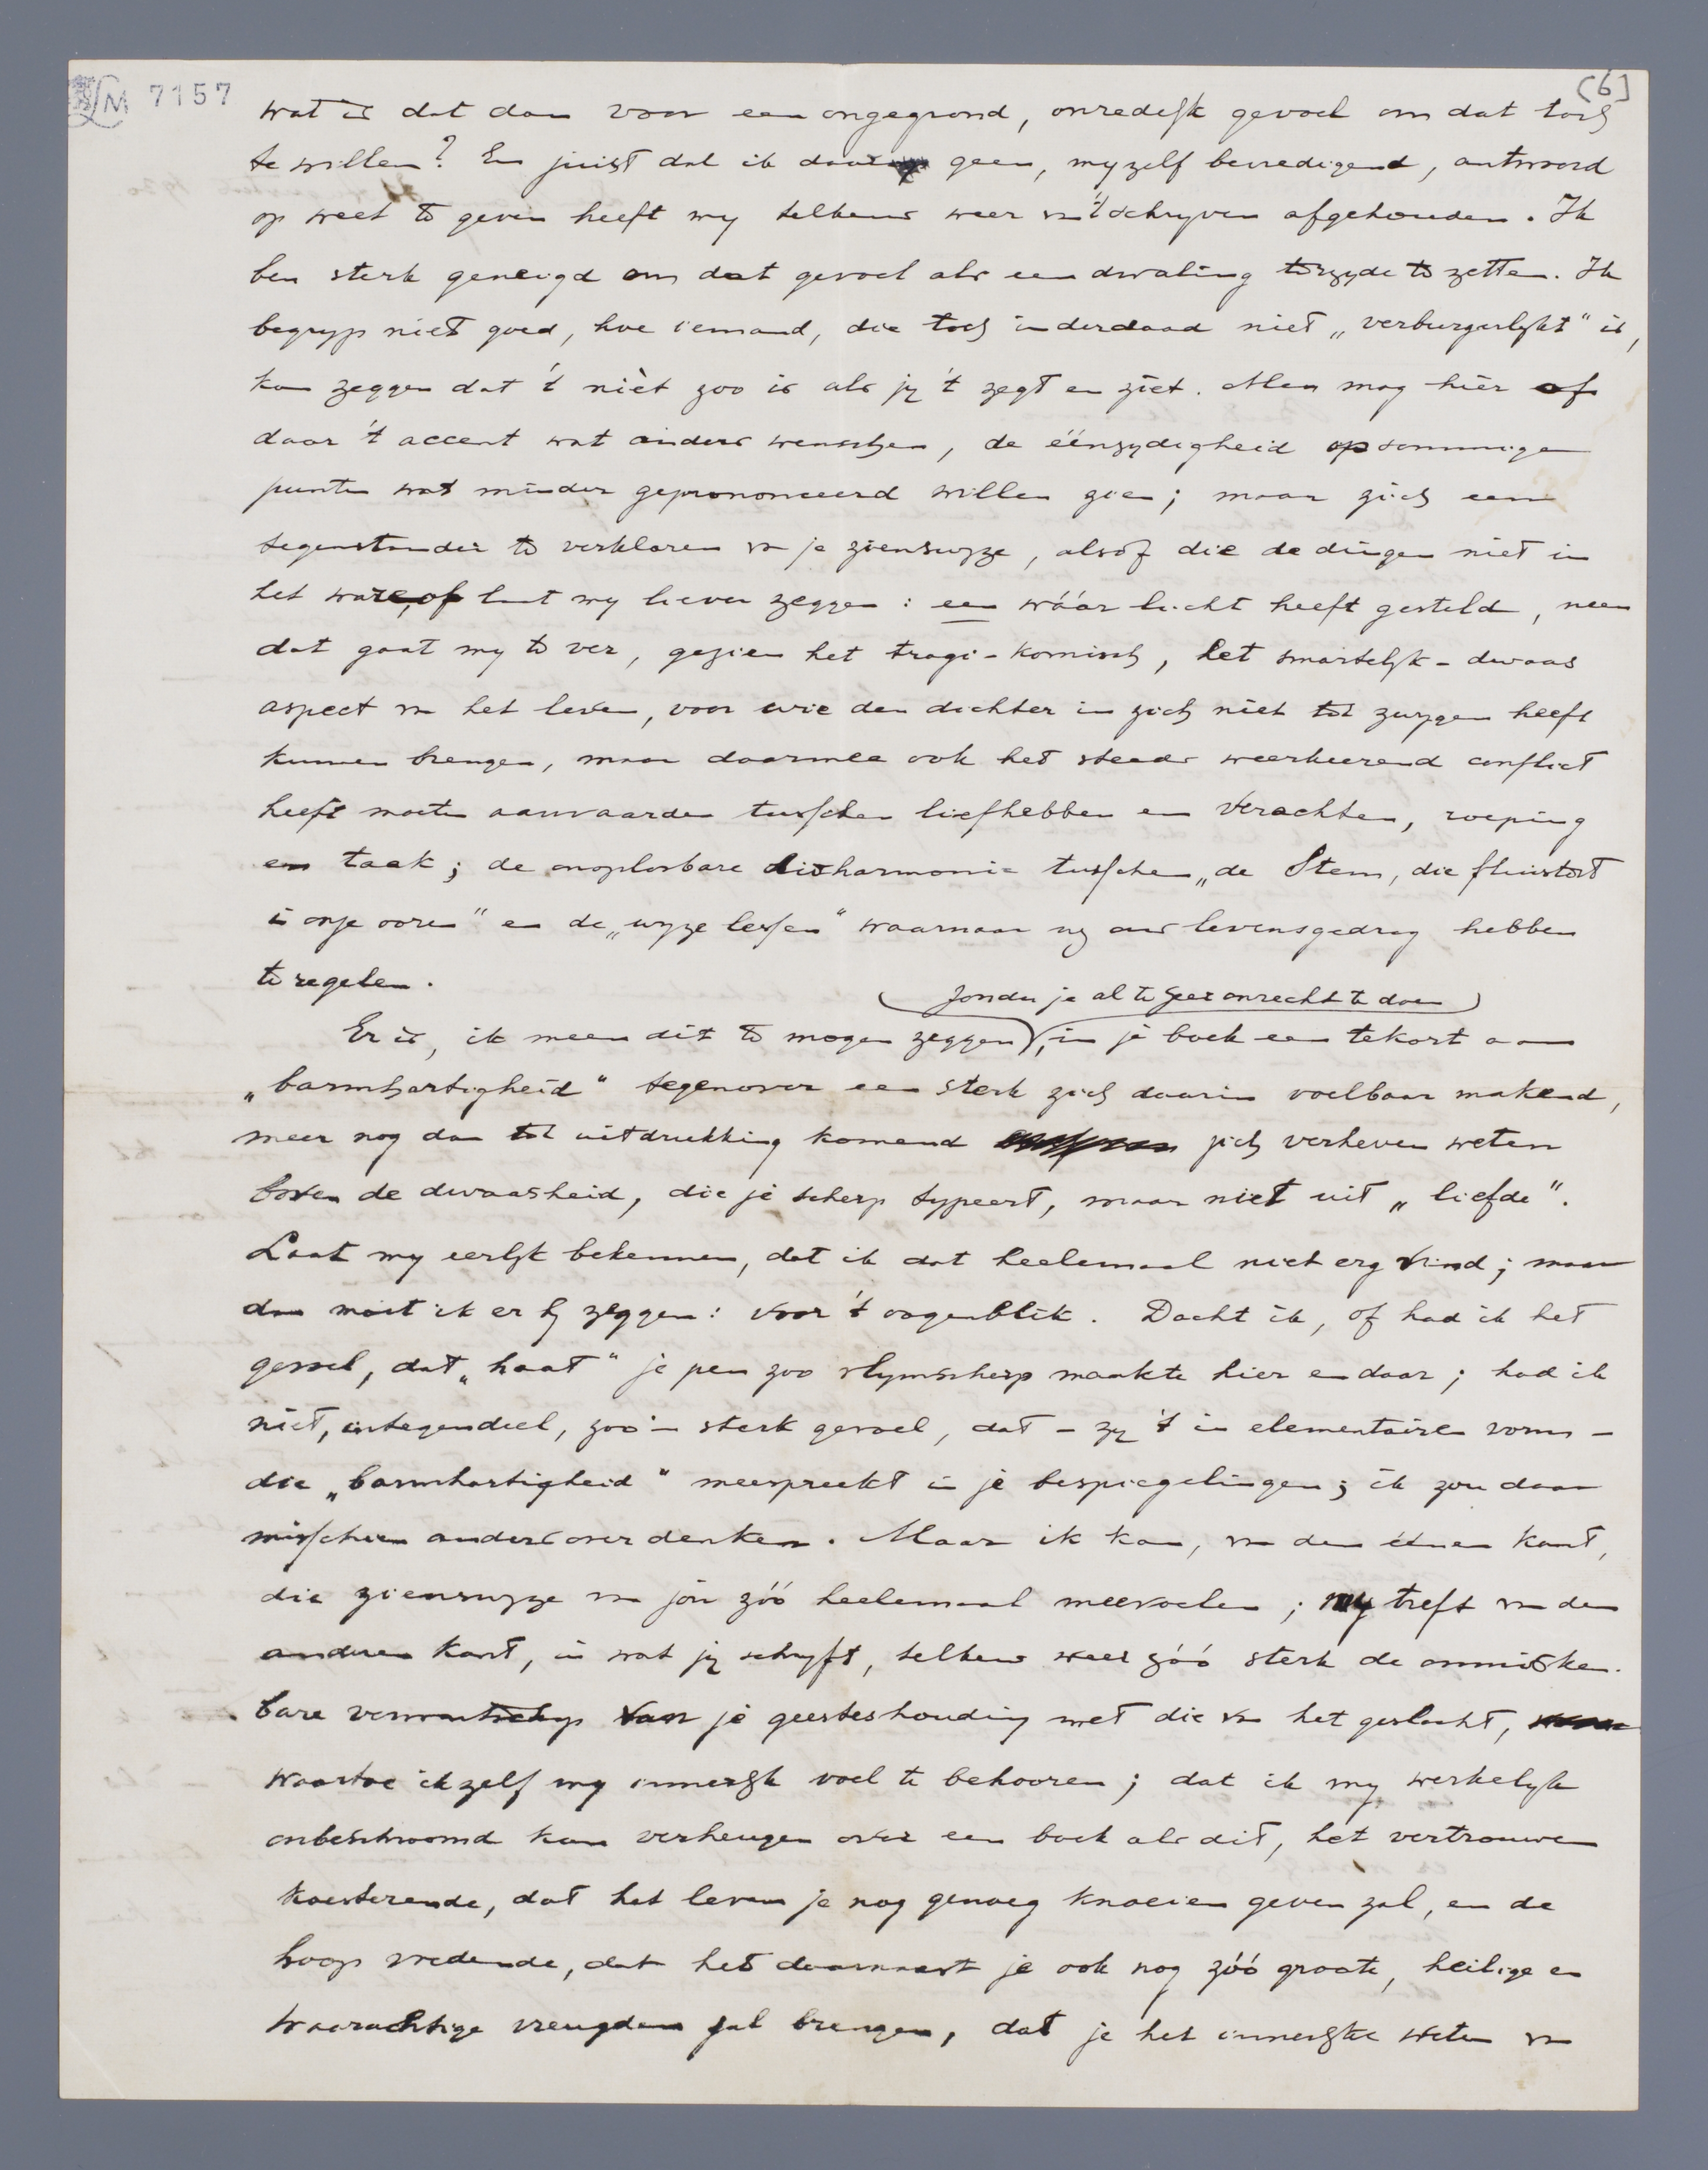 7157
[6]
wat is dat dan voor een ongegrond, onredelijk gevoel om dat toch
te willen? En juist dat ik daar geen, mijzelf bevredigend, antwoord
op weet te geven heeft mij telkens weer v. 't schrijven afgehouden. Ik
ben sterk geneigd om dat gevoel als een dwaling terzijde te zetten. Ik
begrijp niet goed, hoe iemand, die toch inderdaad niet „verburgerlijkt" is,
kan zeggen dat 't nièt zoo is als jij 't zegt en ziet. Men mag hier of
daar 't accent wat anders wenschen, de éénzijdigheid op sommige
punten wat minder geprononceerd willen zien; maar zich een
tegenstander te verklaren v. je zienswijze, alsof die de dingen niet in
het ware, of laat mij liever zeggen: een wáár licht heeft gesteld, neen
dat gaat mij te ver, gezien het tragi-komisch, het smartelijk-dwaas
aspect v. het leven, voor wie den dichter in zich niet tot zwijgen heeft
kunnen brengen, maar daarmee ook het steeds weerkeerend conflict
heeft moeten aanvaarden tusschen liefhebben en verachten, roeping
en taak; de onoplosbare disharmonie tusschen „de Stem, die fluistert
in onze ooren" en de „wijze lessen" waarnaar wij ons levensgedrag hebben
te regelen.
(zonder je al te zeer onrecht te doen)
Er is, ik meen dit te mogen zeggen, in je boek een tekort aan
„barmhartigheid" tegenover een sterk zich daarin voelbaar makend,
meer nog dan tot uitdrukking komend zich verheven weten
boven de dwaasheid, die je scherp typeert, maar niet uit „liefde".
Laat mij eerlijk bekennen, dat ik dat heelemaal niet erg vind; maar
dan moet ik er bij zeggen: voor 't oogenblik. Dacht ik, of had ik het
gevoel, dat „haat" je pen zoo vlijmscherp maakte hier en daar; had ik
niet, integendeel, zoo'n sterk gevoel, dat – zij 't in elementairen vorm –
die „barmhartigheid" meespreekt in je bespiegelingen; ik zou daar
misschien anders over denken. Maar ik kan, v. den éénen kant,
die zienswijze v. jou zóó heelemaal meevoelen; mij treft v. den
anderen kant, in wat jij schrijft, telkens weer zóó sterk de onmisken-
bare verwantschap van je geesteshouding met die v. het geslacht,
waartoe ik zelf mij innerlijk voel te behooren; dat ik mij werkelijk
onbeschroomd kan verheugen over een boek als dit, het vertrouwen
koesterende, dat het leven je nog genoeg knoeien geven zal, en de
hoop voedende, dat het daarnaast je ook nog zóó groote, heilige en
waarachtige vreugden zal brengen, dat je het innerlijke weten v.